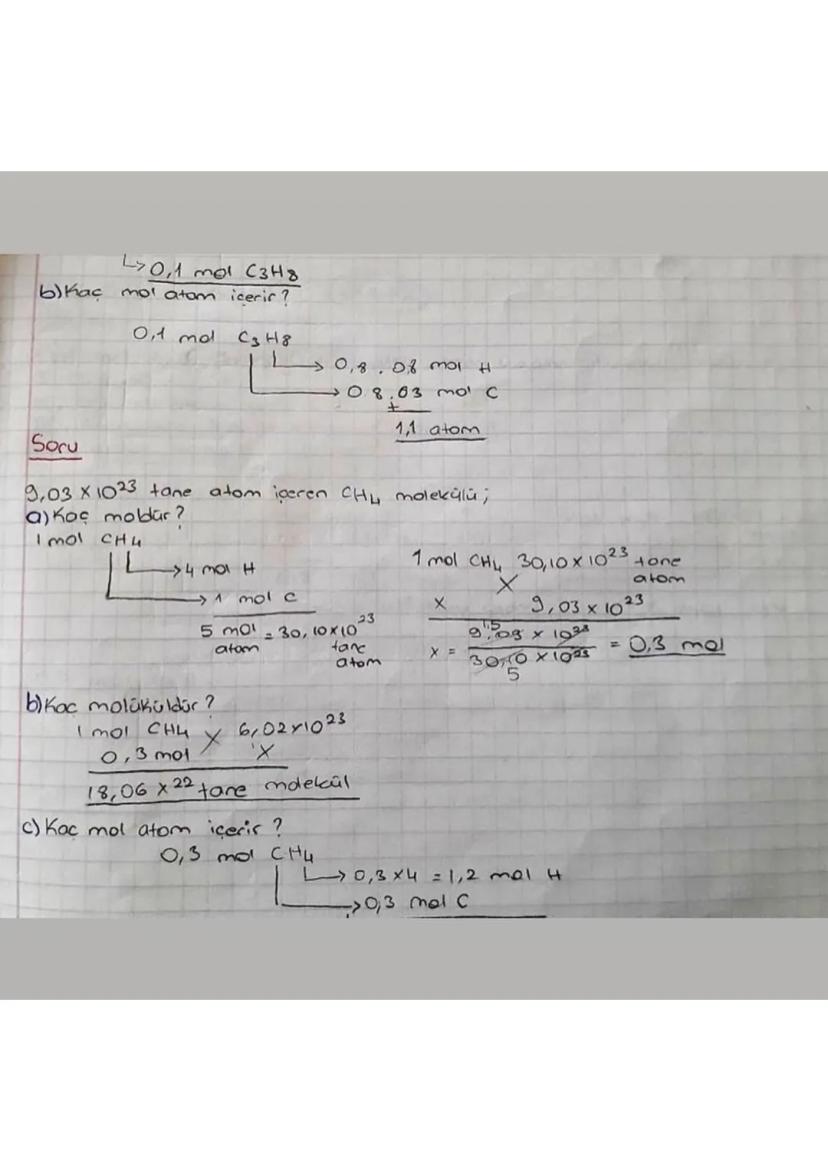 ↳ 0,1 mol C3H8
b) Kaç mol atom içerir?
0,1 mol C3H8
→ 0,8 . 0,8 mol H
→ 0.8.03 mol C
+
1,1 atom
Soru
9,03 x 10²³ tane atom içeren CH4 molekülü;
a) Kaç moldür?
1 mol CH4
→ 4 mol H
→ 1 mol C
5 mol = 30,10x10²³
atom tane
atom
1 mol CH4 30,10 x 10²³ tane
atom
X
x 9,03 x 10²³
x = 9,03 x 10²³ / 30,10 x 10²³ = 0,3 mol
1,5
5
b) Kaç molüküldür?
1 mol CH4 X 6,02x10²³
0,3 mol X
18,06 x ²² tane molekül
c) Kaç mol atom içerir?
0,3 mol CH4
→ 0,3 x4 = 1,2 mol H
→ 0,3 mol C